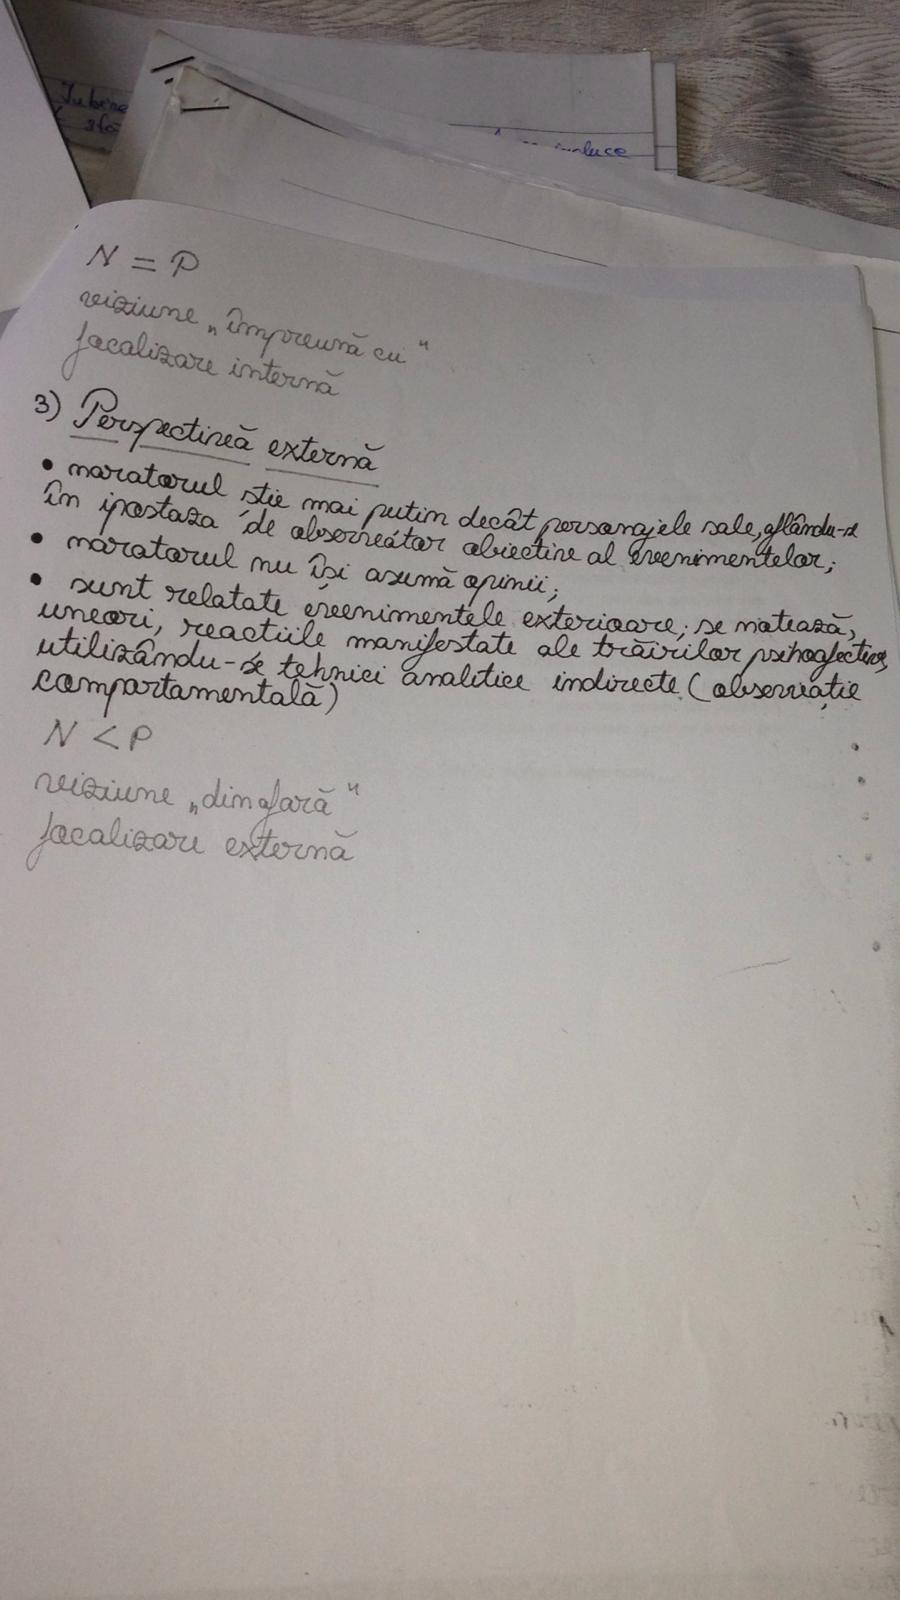 Iubire
involuce
N = P
viziune „împreună cu"
focalizare internă
3) Perspectivă externă
• naratorul știe mai putin decât personajele sale, aflându-se
în ipostaza de observator obiectiv al evenimentelor;
• naratorul nu își asumă opinii;
• sunt relatate evenimentele exterioare; se notează,
uneori, reacțiile manifestate ale trăirilor psihoafective,
utilizându-se tehnici analitice indirecte (observație
comportamentală)
N < P
viziune „dinafară"
focalizare externă